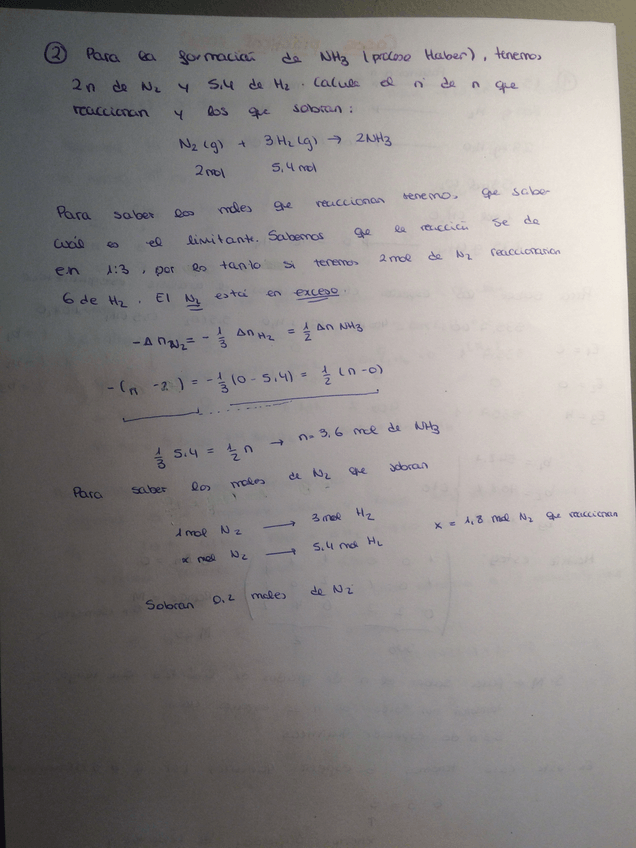 ② Para la formación de NH3 (proceso Haber), tenemos
2n de N2 y 5,4 de H2. Calcula el nº de n que
reaccionan y los que sobran:
N2(g) + 3H2(g) → 2NH3
2mol 5,4mol
Para saber los moles que reaccionan tenemos que saber
cuál es el limitante. Sabemos que la reacción se da
en 1:3, por lo tanto si tenemos 2mol de N2 reaccionarían
6 de H2. El N2 está en exceso
-Δn N2 = -1/3 Δn H2 = 1/2 Δn NH3
-(n -2) = -1/3 (0 - 5,4) = 1/2 (n-0)
1/3 5,4 = 1/2 n → n= 3,6 mol de NH3
Para saber los moles de N2 que sobran
1mol N2 → 3mol H2
x mol N2 → 5,4 mol H2 x = 1,8 mol N2 que reaccionan
Sobran 0,2 moles de N2